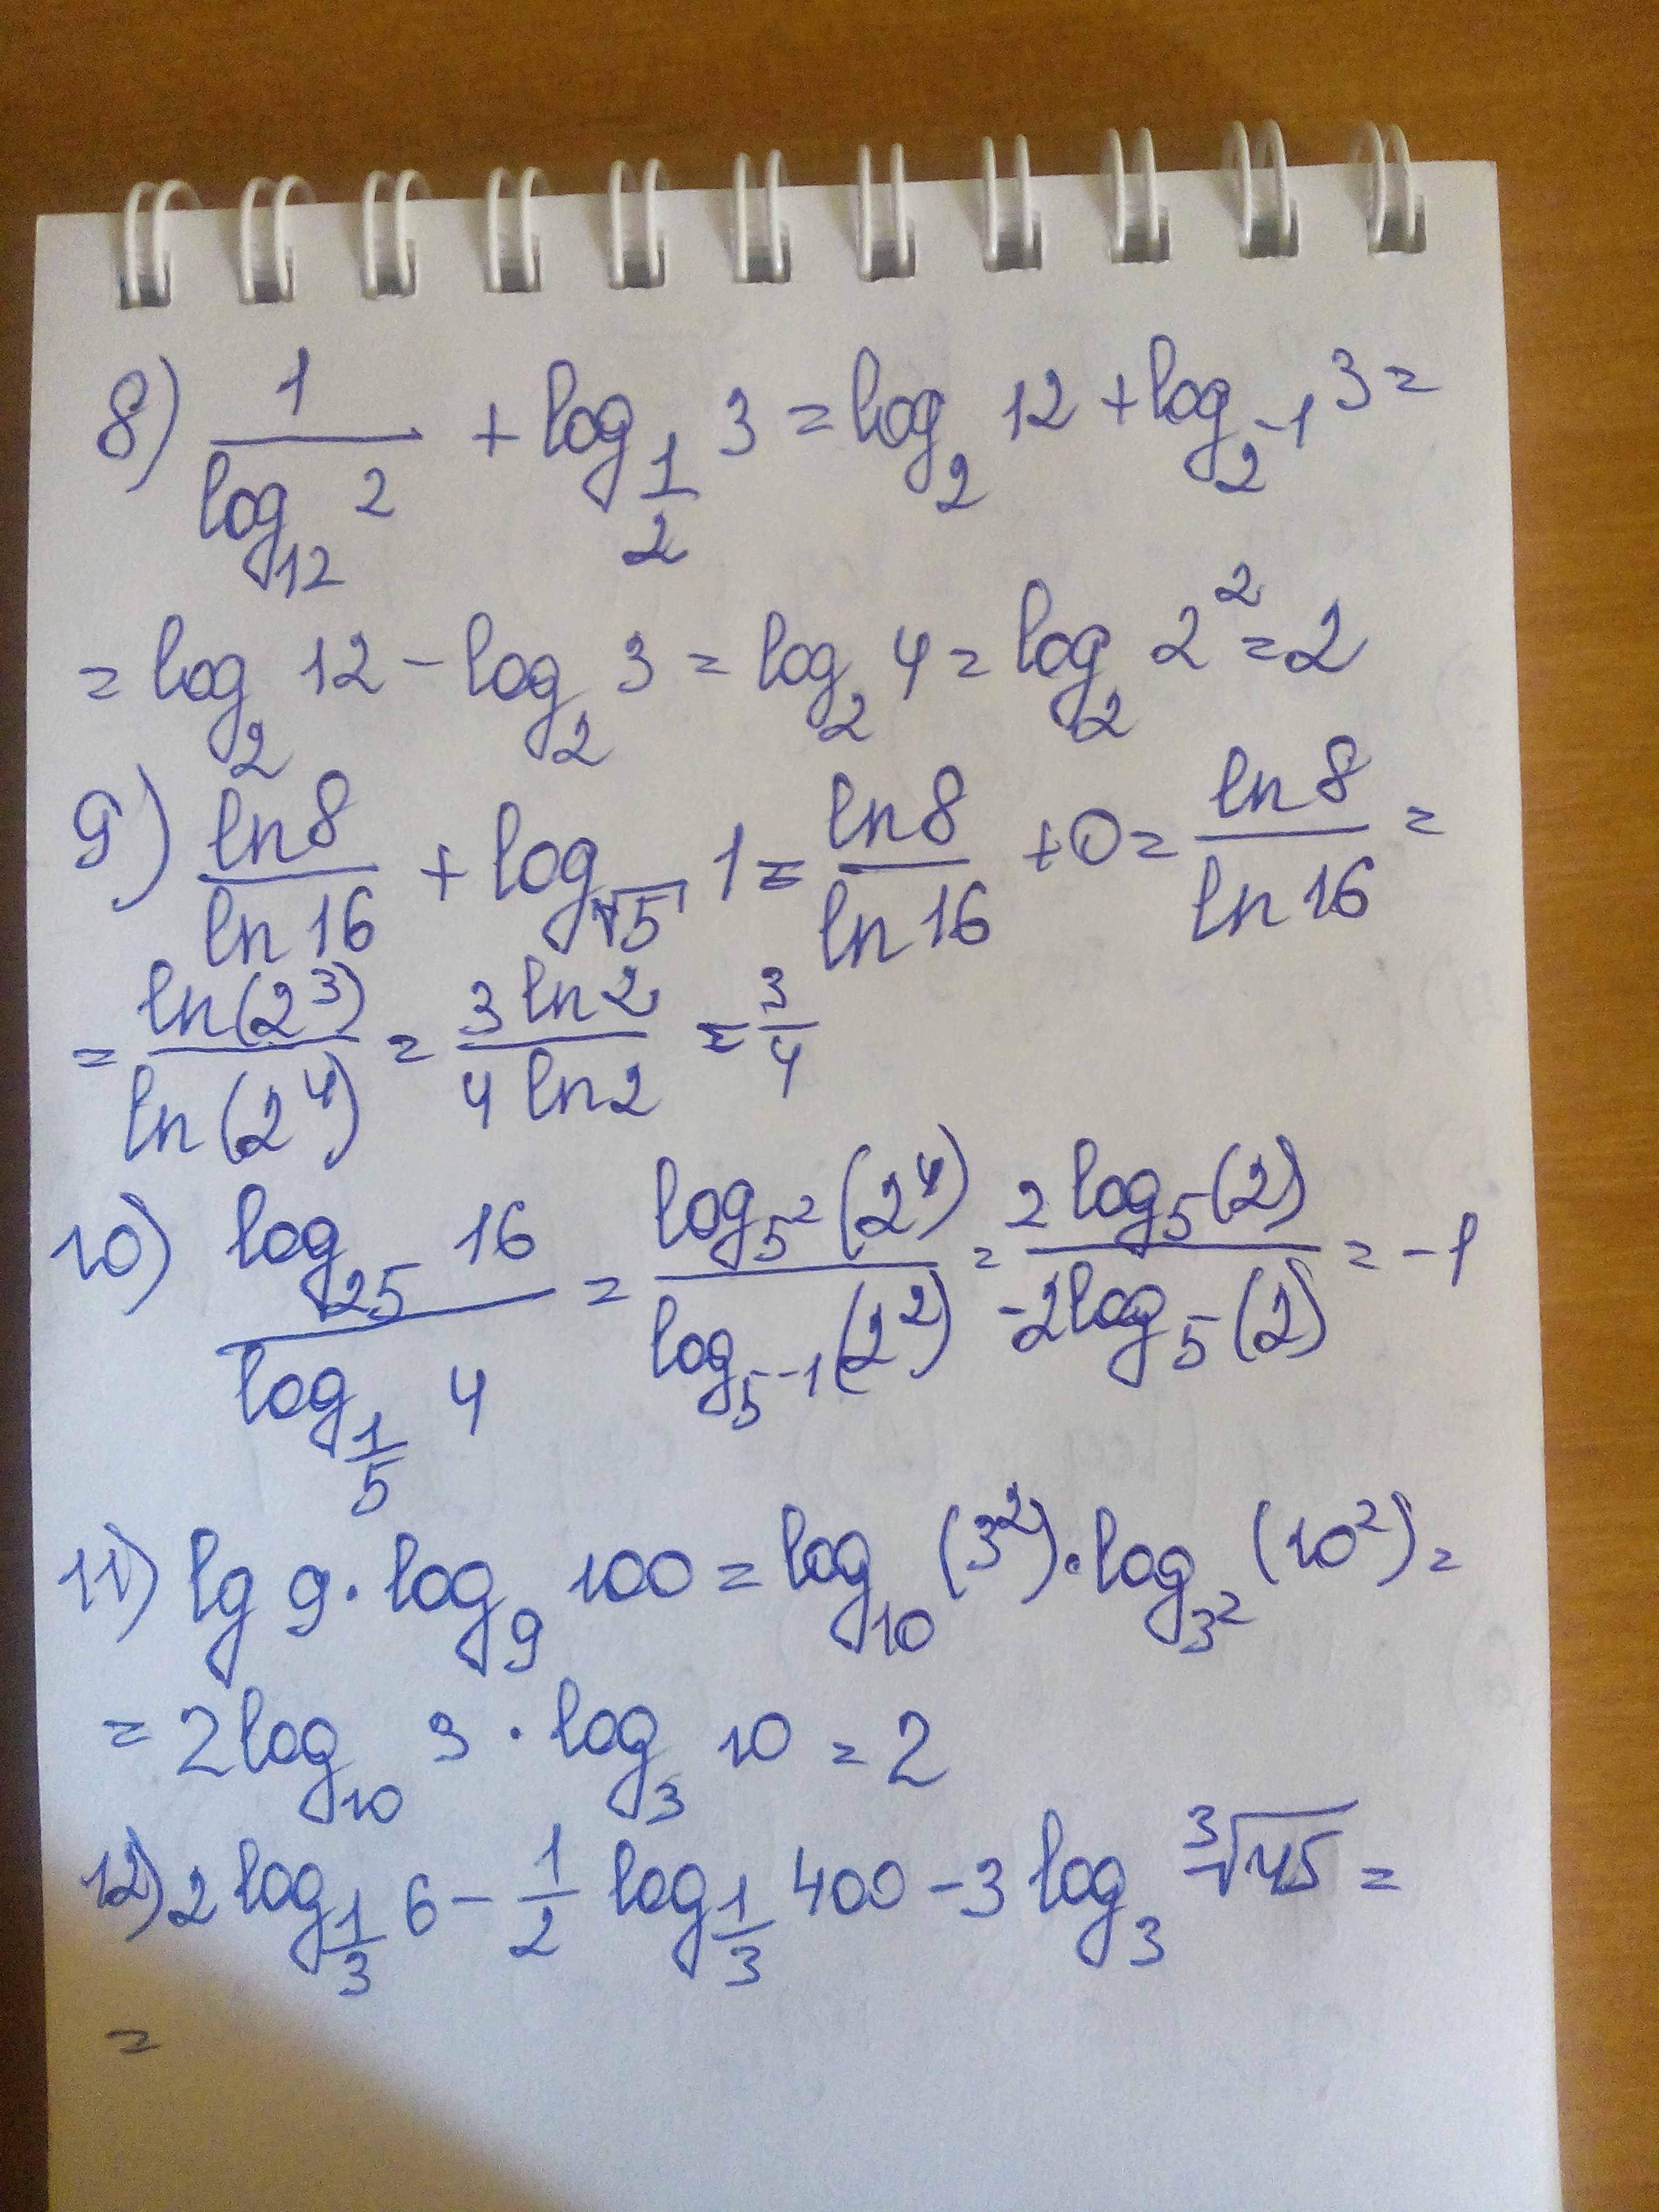 8) 1/log₁₂ 2 + log_{1/2} 3 = log₂ 12 + log_{2⁻¹} 3 =
= log₂ 12 - log₂ 3 = log₂ 4 = log₂ 2² = 2
9) ln 8/ln 16 + log_{√5} 1 = ln 8/ln 16 + 0 = ln 8/ln 16 =
= ln(2³)/ln(2⁴) = 3 ln 2/4 ln 2 = 3/4
10) log₂₅ 16/log_{1/5} 4 = log_{5²}(2⁴)/log_{5⁻¹}(2²) = 2 log₅(2)/-2 log₅(2) = -1
11) lg 9 · log₉ 100 = log₁₀ (3²) · log_{3²} (10²) =
= 2 log₁₀ 3 · log₃ 10 = 2
12) 2 log_{1/3} 6 - 1/2 log_{1/3} 400 - 3 log₃ ∛45 =
=